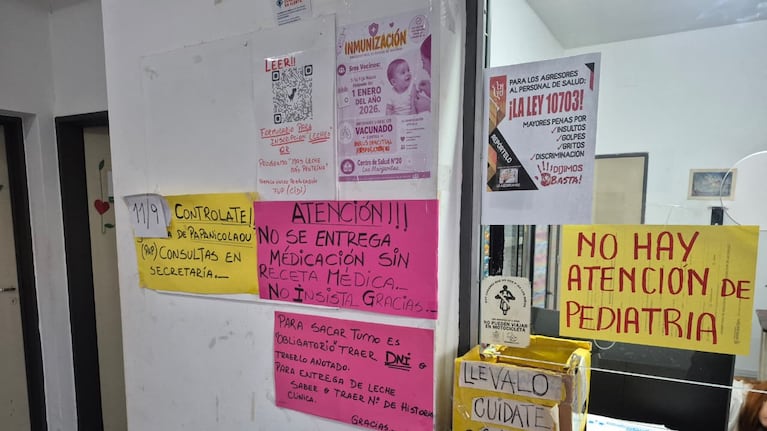 LEER!!
FORMULARIO PARA
INSCRIPCION LECHE
QR
PROGRAMA "MAS LECHE
MÁS PROTEÍNA".
(CIDI)
INMUNIZACIÓN
Sres Vecinos:
1 ENERO
DEL AÑO
2026.
VACUNADO
Centro de Salud N°20
Las Margaritas
11/9
CONTROLATE!
DE PAPANICOLAOU
(PAP) CONSULTAS EN
SECRETARÍA._
ATENCIÓN!!!
NO SE ENTREGA
MÉDICACIÓN SIN
RECETA MÉDICA._
NO INSISTA GRACIAS._
PARA SACAR TURNO ES
"OBLIGATORIO" TRAER DNI o
TRAERLO ANOTADO.
PARA ENTREGA DE LECHE
SABER o TRAER N° DE HISTORIA
CLÍNICA.
GRACIAS._
PARA LOS AGRESORES
AL PERSONAL DE SALUD:
¡LA LEY 10703!
MAYORES PENAS POR
INSULTOS
GOLPES
GRITOS
DISCRIMINACIÓN
REPORTELO
¡DIJIMOS
BASTA!
NO HAY
ATENCIÓN DE
PEDIATRIA
NO PUEDEN VIAJAR
EN MOTOCICLETA
LLEVALO
CUIDATE